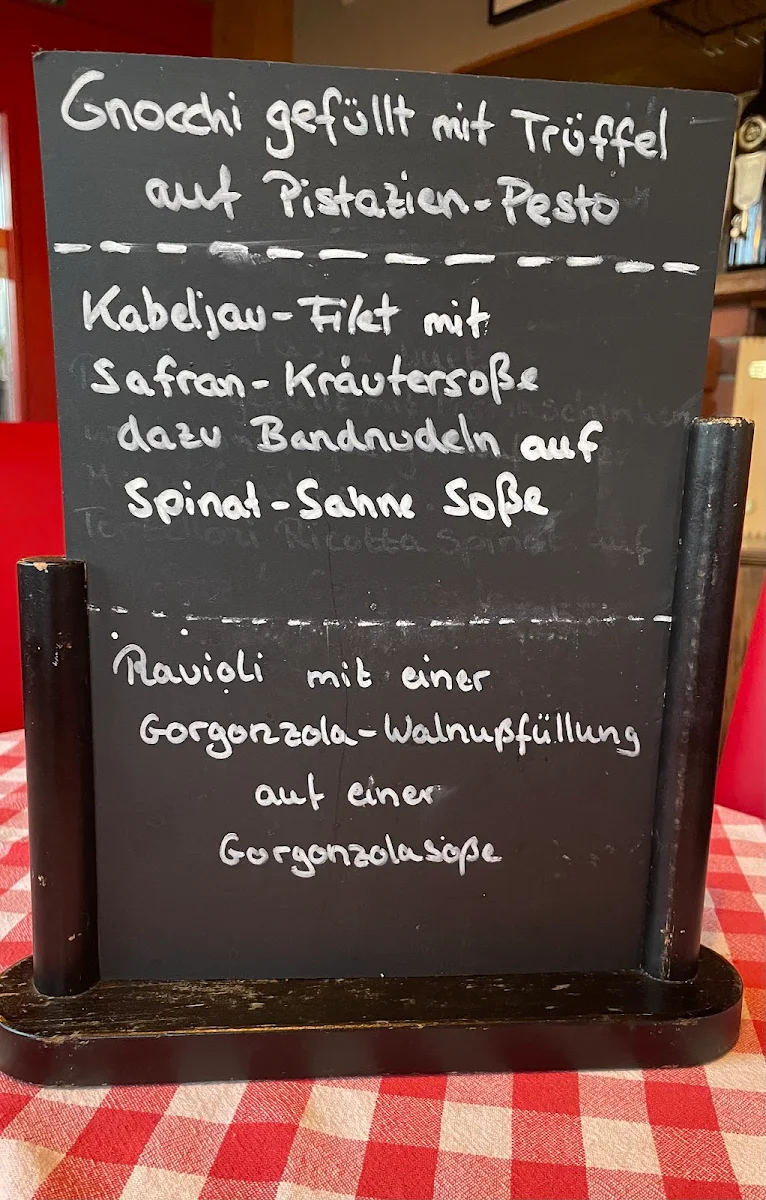 Gnocchi gefüllt mit Trüffel
auf Pistazien-Pesto
Kabeljau-Filet mit
Safran-Kräutersoße
dazu Bandnudeln auf
Spinat-Sahne Soße
Tortelloni Ricotta Spinat auf
Ravioli mit einer
Gorgonzola-Walnußfüllung
auf einer
Gorgonzolasoße